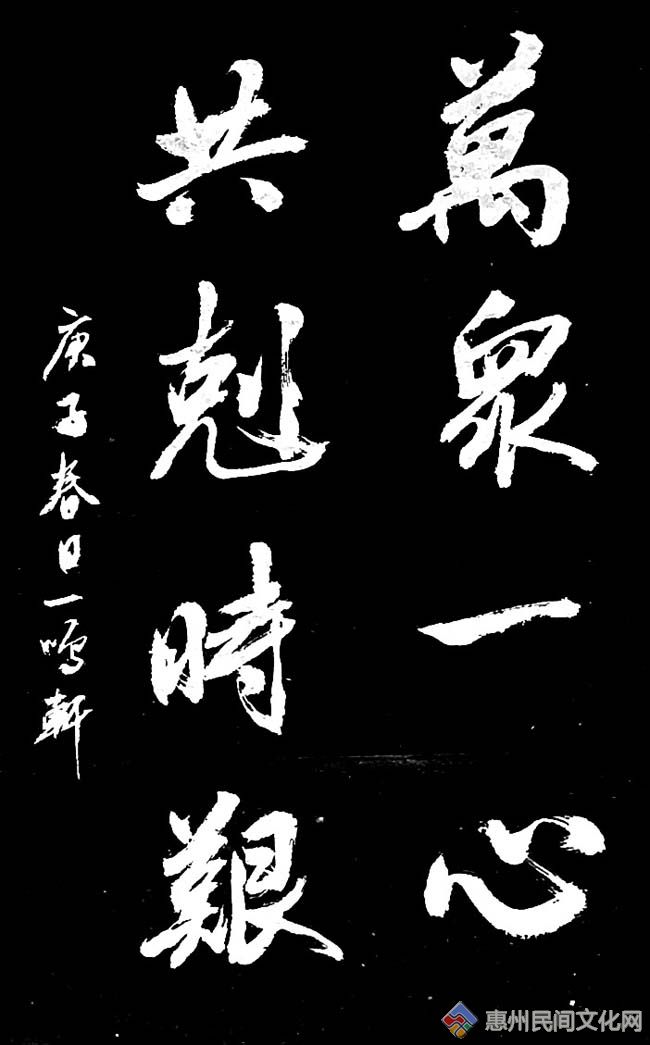 萬眾一心
共剋時艱
庚子春日一鳴軒
惠州民间文化网